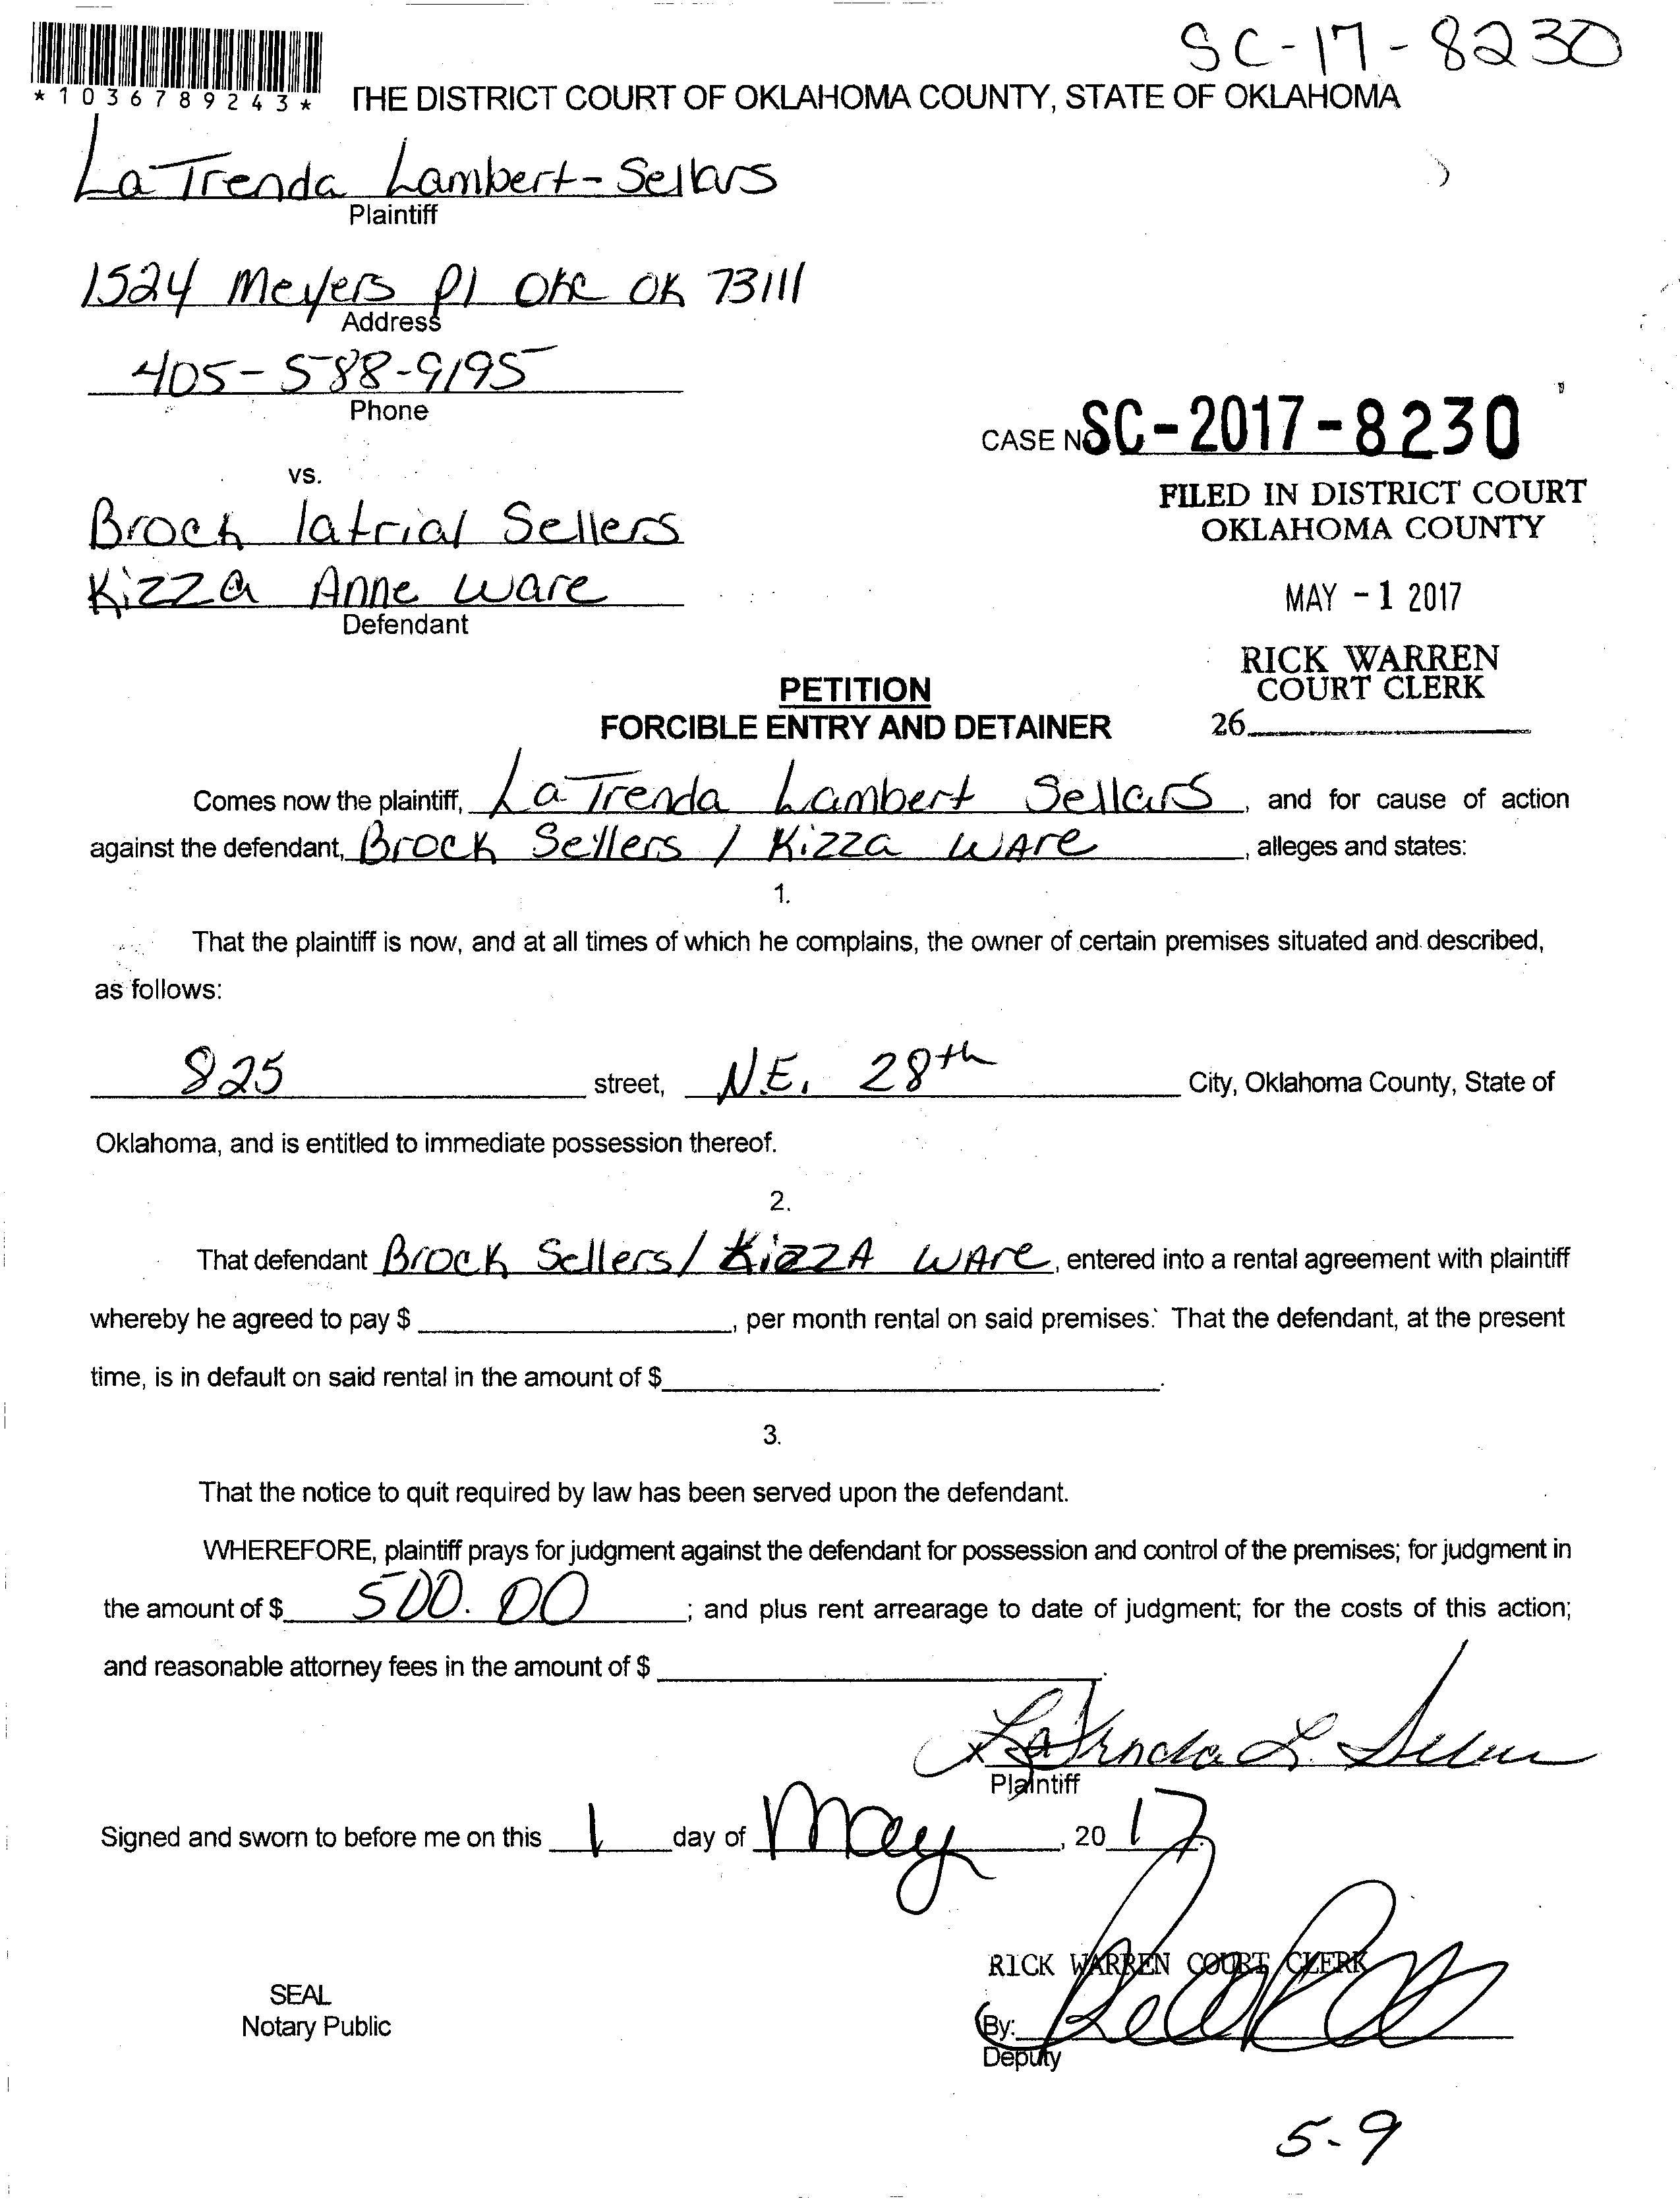 SC-17-8230
*1036789243*
THE DISTRICT COURT OF OKLAHOMA COUNTY, STATE OF OKLAHOMA
LaTrenda Lambert-Sellars
Plaintiff
1524 Meyers Pl OKC OK 73111
Address
405-588-9195
Phone
CASE NO SC-2017-8230
vs.
FILED IN DISTRICT COURT
OKLAHOMA COUNTY
Brock latrial Sellers
MAY -1 2017
Kizza Anne Ware
Defendant
RICK WARREN
COURT CLERK
26
PETITION
FORCIBLE ENTRY AND DETAINER
Comes now the plaintiff, LaTrenda Lambert Sellars, and for cause of action
against the defendant, Brock Sellers / Kizza WAre, alleges and states:
1.
That the plaintiff is now, and at all times of which he complains, the owner of certain premises situated and described,
as follows:
825 street, N.E. 28th City, Oklahoma County, State of
Oklahoma, and is entitled to immediate possession thereof.
2.
That defendant Brock Sellers / KizzA WAre, entered into a rental agreement with plaintiff
whereby he agreed to pay $ , per month rental on said premises. That the defendant, at the present
time, is in default on said rental in the amount of $ .
3.
That the notice to quit required by law has been served upon the defendant.
WHEREFORE, plaintiff prays for judgment against the defendant for possession and control of the premises; for judgment in
the amount of $ 500.00 ; and plus rent arrearage to date of judgment; for the costs of this action;
and reasonable attorney fees in the amount of $ .
x LaTrenda L. Sellars
Plaintiff
Signed and sworn to before me on this 1 day of May, 2017.
RICK WARREN COURT CLERK
SEAL
Notary Public
By:
Deputy
5-9